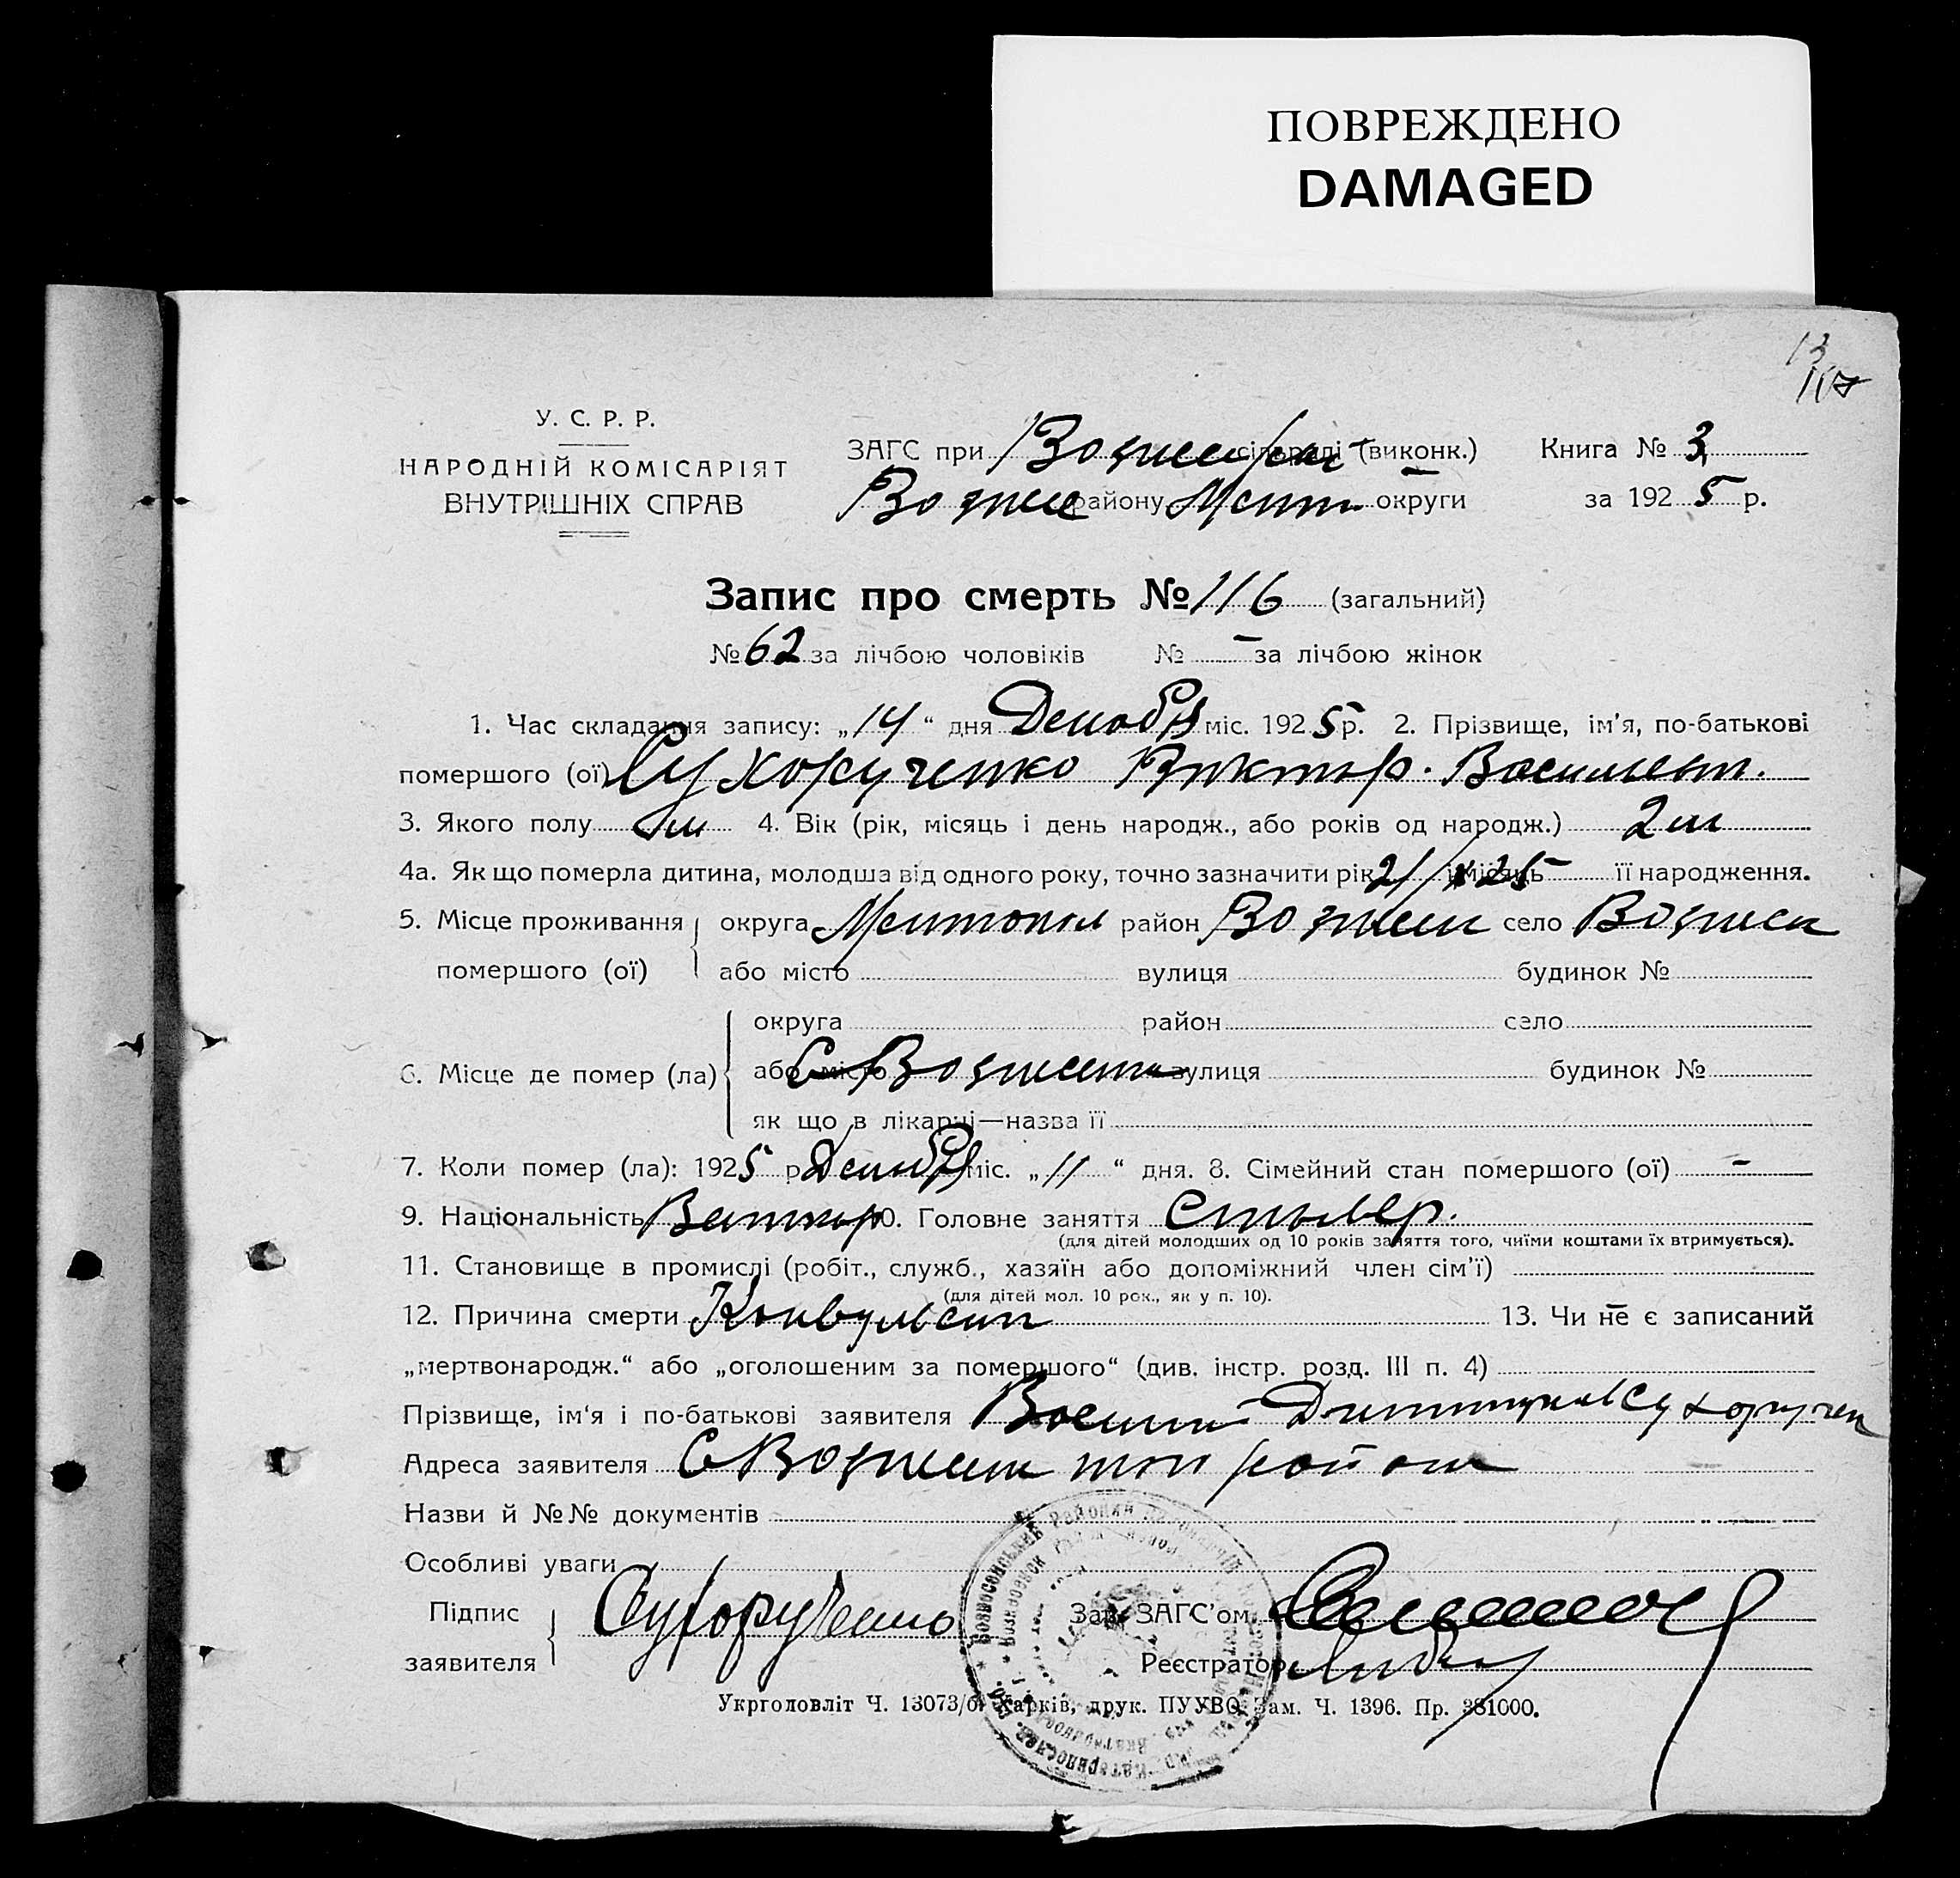 ПОВРЕЖДЕНО
DAMAGED
13
У. С. Р. Р.
НАРОДНІЙ КОМІСАРІЯТ
ВНУТРІШНІХ СПРАВ
ЗАГС при сільраді (виконк.) Книга № 3
району округи за 1925 р.
Запис про смерть № 116 (загальний)
№ 62 за лічбою чоловіків № - за лічбою жінок
1. Час складання запису: „14“ дня Декабря міс. 1925 р. 2. Прізвище, ім'я, по-батькові
помершого (ої) Сухорученко Виктор. Васильев.
3. Якого полу м 4. Вік (рік, місяць і день народж., або років од народж.) 2 м
4а. Як що померла дитина, молодша від одного року, точно зазначити рік 21/X 25 і місяць її народження.
5. Місце проживання округа район село
помершого (ої) або місто вулиця будинок №
округа район село
6. Місце де помер (ла) або місто С вулиця будинок №
як що в лікарні—назва її
7. Коли помер (ла): 1925 р. Декабря міс. „11“ дня. 8. Сімейний стан помершого (ої) -
9. Національність 10. Головне заняття Столяр.
(для дітей молодших од 10 років заняття того, чиїми коштами їх втримується).
11. Становище в промислі (робіт., служб., хазяїн або допоміжний член сім'ї)
(для дітей мол. 10 рок., як у п. 10).
12. Причина смерти Конвульсии 13. Чи не є записаний
„мертвонародж.“ або „оголошеним за помершого“ (див. інстр. розд. III п. 4)
Прізвище, ім'я і по-батькові заявителя
Адреса заявителя С район
Назви й №№ документів
Особливі уваги
Підпис Сухорученко Зав. ЗАГС'ом
заявителя Реєстратор
Укрголовліт Ч. 13073/б. Харків, друк. ПУУВО. Зам. Ч. 1396. Пр. 381000.